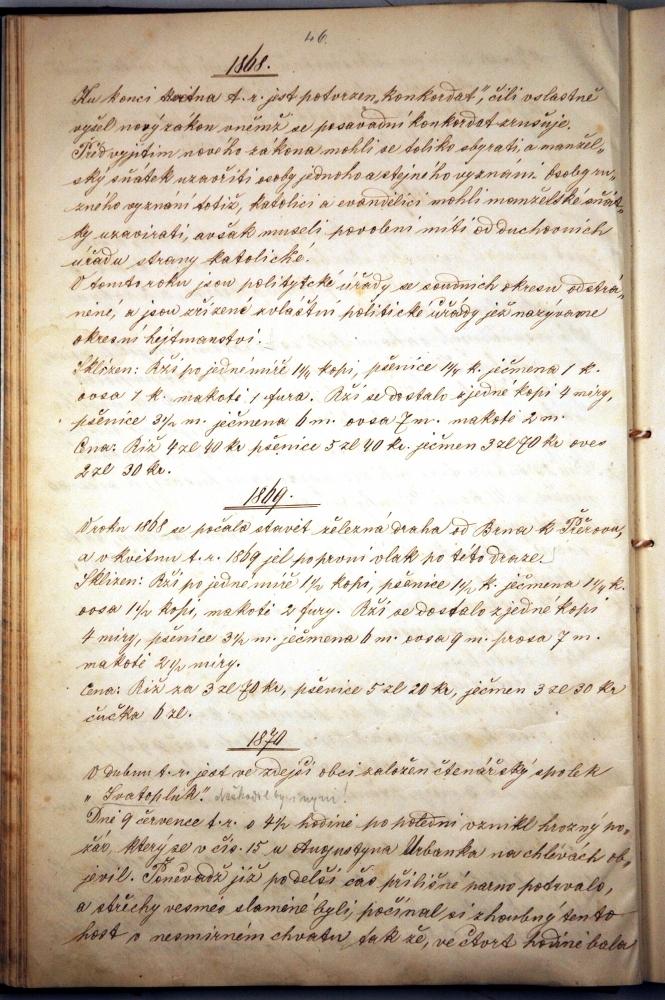 46.
1868.
Ku konci května t. r. jest potvrzen „Konkordat", čili vslastně
vyšel nový zákon vněmž se posavadní konkordat zrušuje.
Před vyjitím nového zákona mohli se toliko sbyrati, a manžel„
ský sňátek uzavříti osoby jednoho a stejného vyznání. Osoby rů„
zného vyznaní totiž, katolíci a evandělíci mohli manželské sňát„
ky uzavirati, avšak museli povolení míti od duchovních
úřadů strany katolické.
O tomto roku jsou polytycké úřády se soudních okresu odstrá„
něné, a jsou zřízené zvláštní politické úřády jež nazýváme
okresní hejtmanství.
Sklizen: Rži po jedné míře 1¼ kopi, pšenice 1¼ k. ječmena 1 k.
ovsa 1 k. makotě 1 fura. Rži se dostalo z jedné kopi 4 míry,
pšenice 3½ m. ječmena 6 m. ovsa 7 m. makotě 2 m.
Cena: Riž 4 zl 40 kr pšenice 5 zl 40 kr. ječmen 3 zl 70 kr oves
2 zl 30 kr.
1869.
V roku 1868 se počala stavit želežná draha od Brna k Přerovu,
a v květnu t. r. 1869 jěl po první vlak po této draze.
Sklizen: Rži po jedné míře 1½ kopi, pšenice 1½ k. ječmena 1¼ k.
ovsa 1½ kopi, makotě 2 fury. Rži se dostalo z jedné kopi
4 míry, pšenice 3½ m. ječmena 6 m. ovsa 9 m. prosa 7 m.
makotě 2½ míry.
Cena: Riž za 3 zl 70 kr, pšenice 5 zl 20 kr, ječmen 3 zl 30 kr
čučka 6 zl.
1870
V dubnu t. r. jest ve zdejší obci založen čtenářský spolek
„Svatopluk". nyní!
Dné 9 července t. r. o 4½ hodině po polední vznikl hrozný po„
žár, který se v čís. 15 u Augustyna Urbanka na chlévách ob„
jevil. Poněvadž již po delší čas přílišné parno potrvalo,
a střechy vesměs slaměné byli, počínal si zhoubný tento
host s nesmírném chvatu tak že, ve čtvrt hodině bala